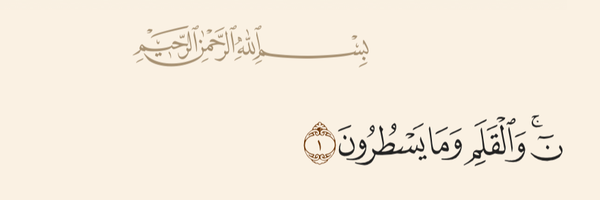 بِسْمِ ٱللَّهِ ٱلرَّحْمَٰنِ ٱلرَّحِيمِ
نٓ ۚ وَٱلْقَلَمِ وَمَا يَسْطُرُونَ ١